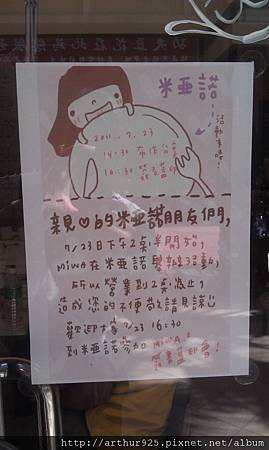 米亞諾
活動事時!
2011.7.23
14:30 布作分享
16:30 簽書會
親♡的米亞諾朋友們,
7/23日下午2桌半開始,
miwa在米亞諾舉辦活動,
所以營業到2桌為止,
造成您的不便尚請見諒
歡迎大家 7/23 16:30
到米亞諾參加 miwa's
簽書會!
http://arthur925.pixnet.net/album